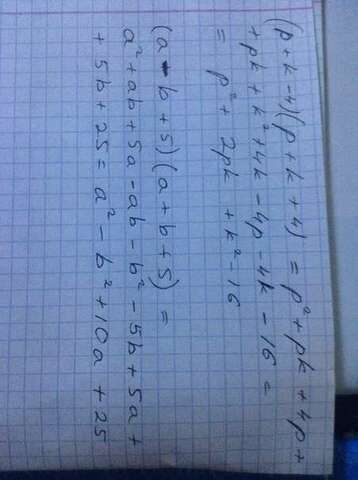 (p+k-4)(p+k+4) = p²+pk+4p+
+pk+k²+4k-4p-4k-16=
= p²+2pk+k²-16
(a-b+5)(a+b+5)=
a²+ab+5a-ab-b²-5b+5a+
+5b+25=a²-b²+10a+25